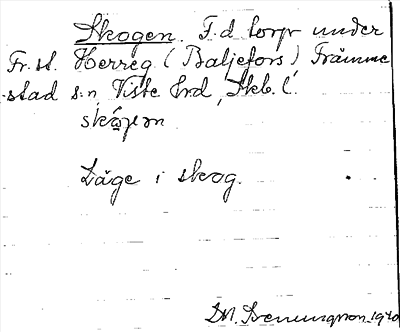 Skogen. F.d torp under
Fr. st. Herreg (Baljefors) Främme
stad s:n, Viste hrd, Skb. l.
skógen
Läge i skog.
D.A. Benningson 1940